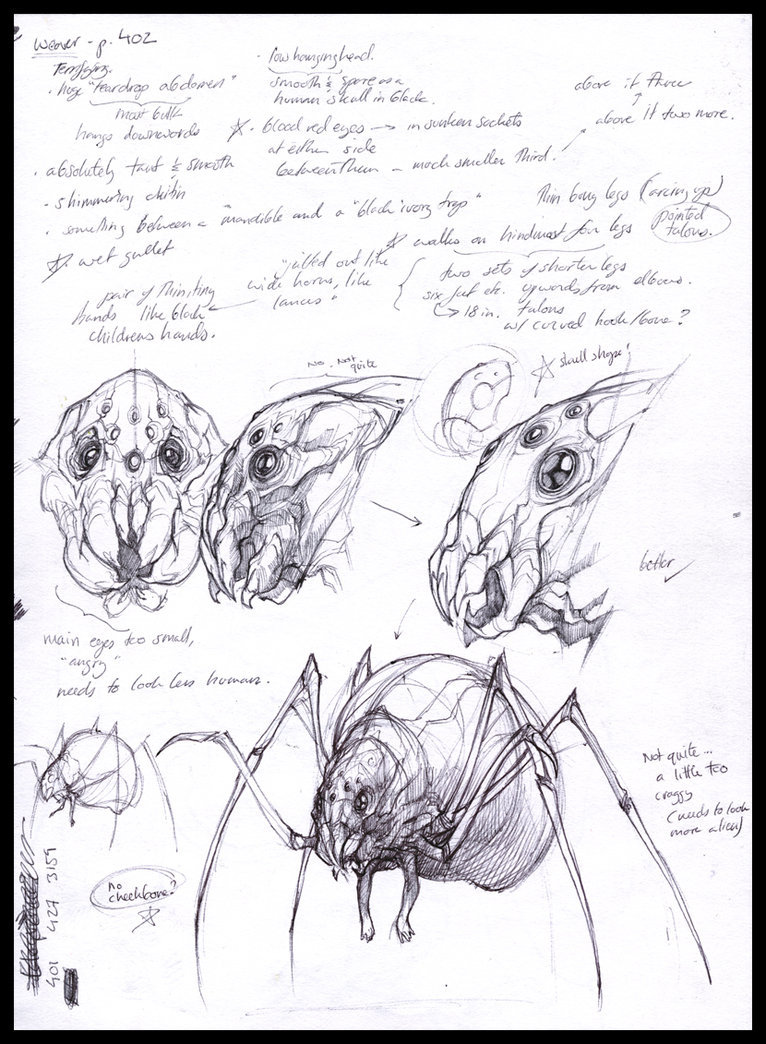 weaver - p. 402
Terrifying.
• huge "teardrop abdomen"
most bulk
hangs downwards
• absolutely taut & smooth
- shimmering chitin
• something between a "mandible and a "black ivory trap"
wet gullet
• low hanging head.
smooth & spare as a
human skull in black.
• blood red eyes → in sunken sockets
at either side
between them - much smaller third.
above it two more.
above it three
Thin bony legs (arcing up)
pointed
talons.
walks on hindmost four legs
two sets of shorter legs
six feet etc. upwards from elbows.
→ 18 in. talons
w/ curved hook/bone?
"jutted out like
wide horns, like
lances"
pair of thin, tiny
hands like black
childrens hands.
No. Not
quite
skull shape!
better
main eyes too small,
"angry"
needs to look less human.
Not quite...
a little too
craggy
(needs to look
more alien)
no
cheekbone?
401 427 3159